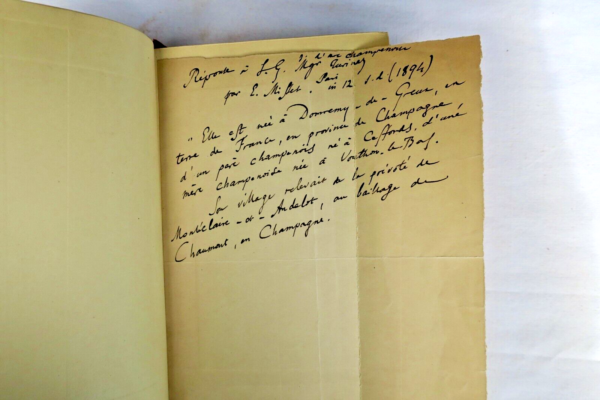 d'arc champenoise
Réponse à S. G. Mgr Turinaz
par E. Misset. Paris in 12 s. d (1894)
" Elle est née à Domremy - de - Greux, en
terre de France, en province de Champagne
d'un père champenois né à Ceffonds, d'une
mère champenoise née à Vouthon-le-Bas.
Son village relevait de la prévoté de
Montéclaire - et - Andelot, au bailliage de
Chaumont, en Champagne.